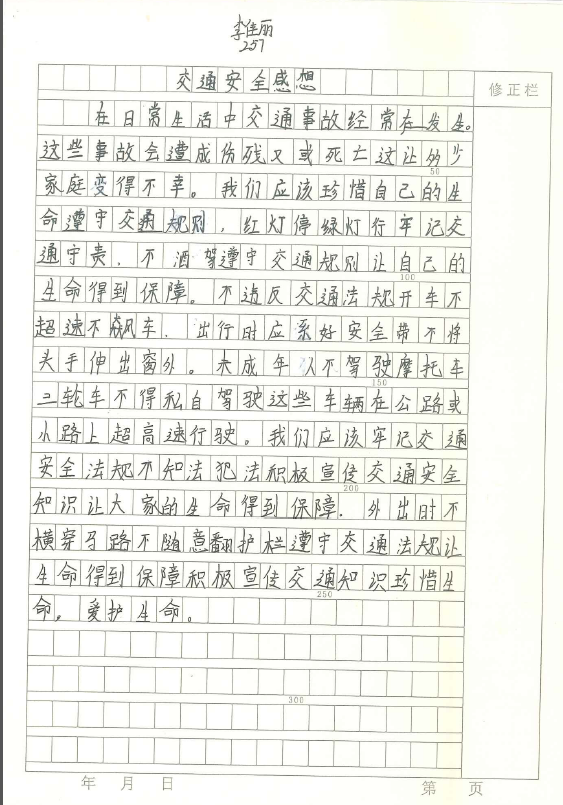 李佳丽
257
交通安全感想
修正栏
在日常生活中交通事故经常在发生。
这些事故会遭成伤残又或死亡这让多少
50
家庭变得不幸。我们应该珍惜自己的生
命遵守交通规则，红灯停绿灯行牢记交
通守责，不酒驾遵守交通规则让自己的
100
生命得到保障。不违反交通法规开车不
超速不飙车，出行时应系好安全带不将
头手伸出窗外。未成年人不驾驶摩托车
150
三轮车不得私自驾驶这些车辆在公路或
小路上超高速行驶。我们应该牢记交通
安全法规不知法犯法积极宣传交通安全
200
知识让大家的生命得到保障．外出时不
横穿马路不随意翻护栏遵守交通法规让
生命得到保障积极宣传交通知识珍惜生
250
命，爱护生命。
300
年 月 日
第 页